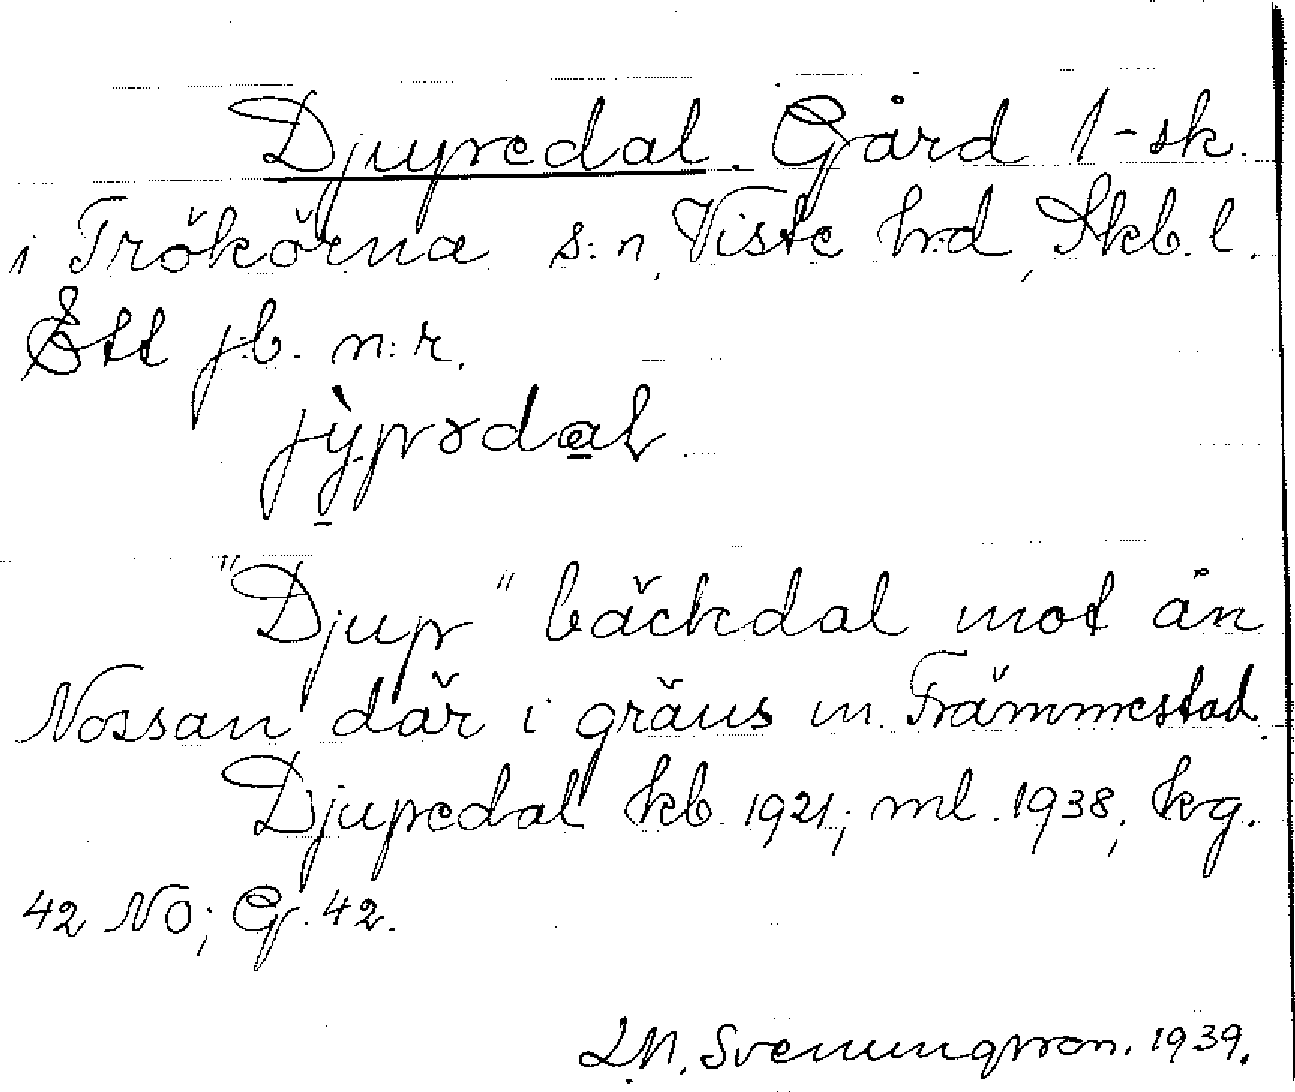 Djupedal. Gård 1-sk.
i Trökörna s:n, Viste h:d, Skb. l.
Ett jb. n:r.
jỳ̠pəda̠ɫ
"Djup" bäckdal mot ån
Nossan där i gräns m. Främmestad.
Djupedal kb 1921; ml. 1938, kg.
42 NO; G. 42.
Svenungsson. 1939.